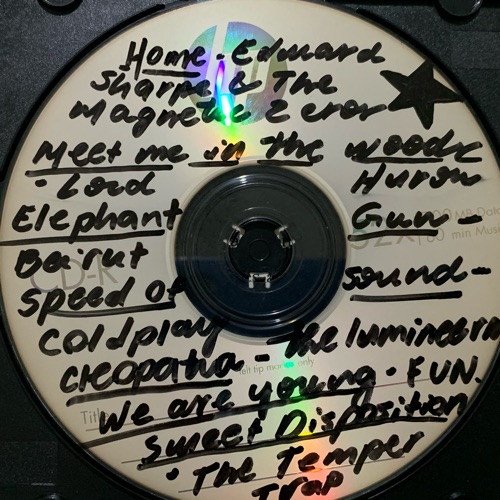 Home - Edward
Sharpe & The
Magnetic Zeros
Meet me in the woods
- Lord Huron
Elephant Gun -
MB Data
52X
min. Music
Beirut
CD-R
Speed of sound -
Coldplay
Cleopatra - The lumineers
felt tip only
We are young - FUN.
Title
Sweet Disposition
- The Temper
Trap